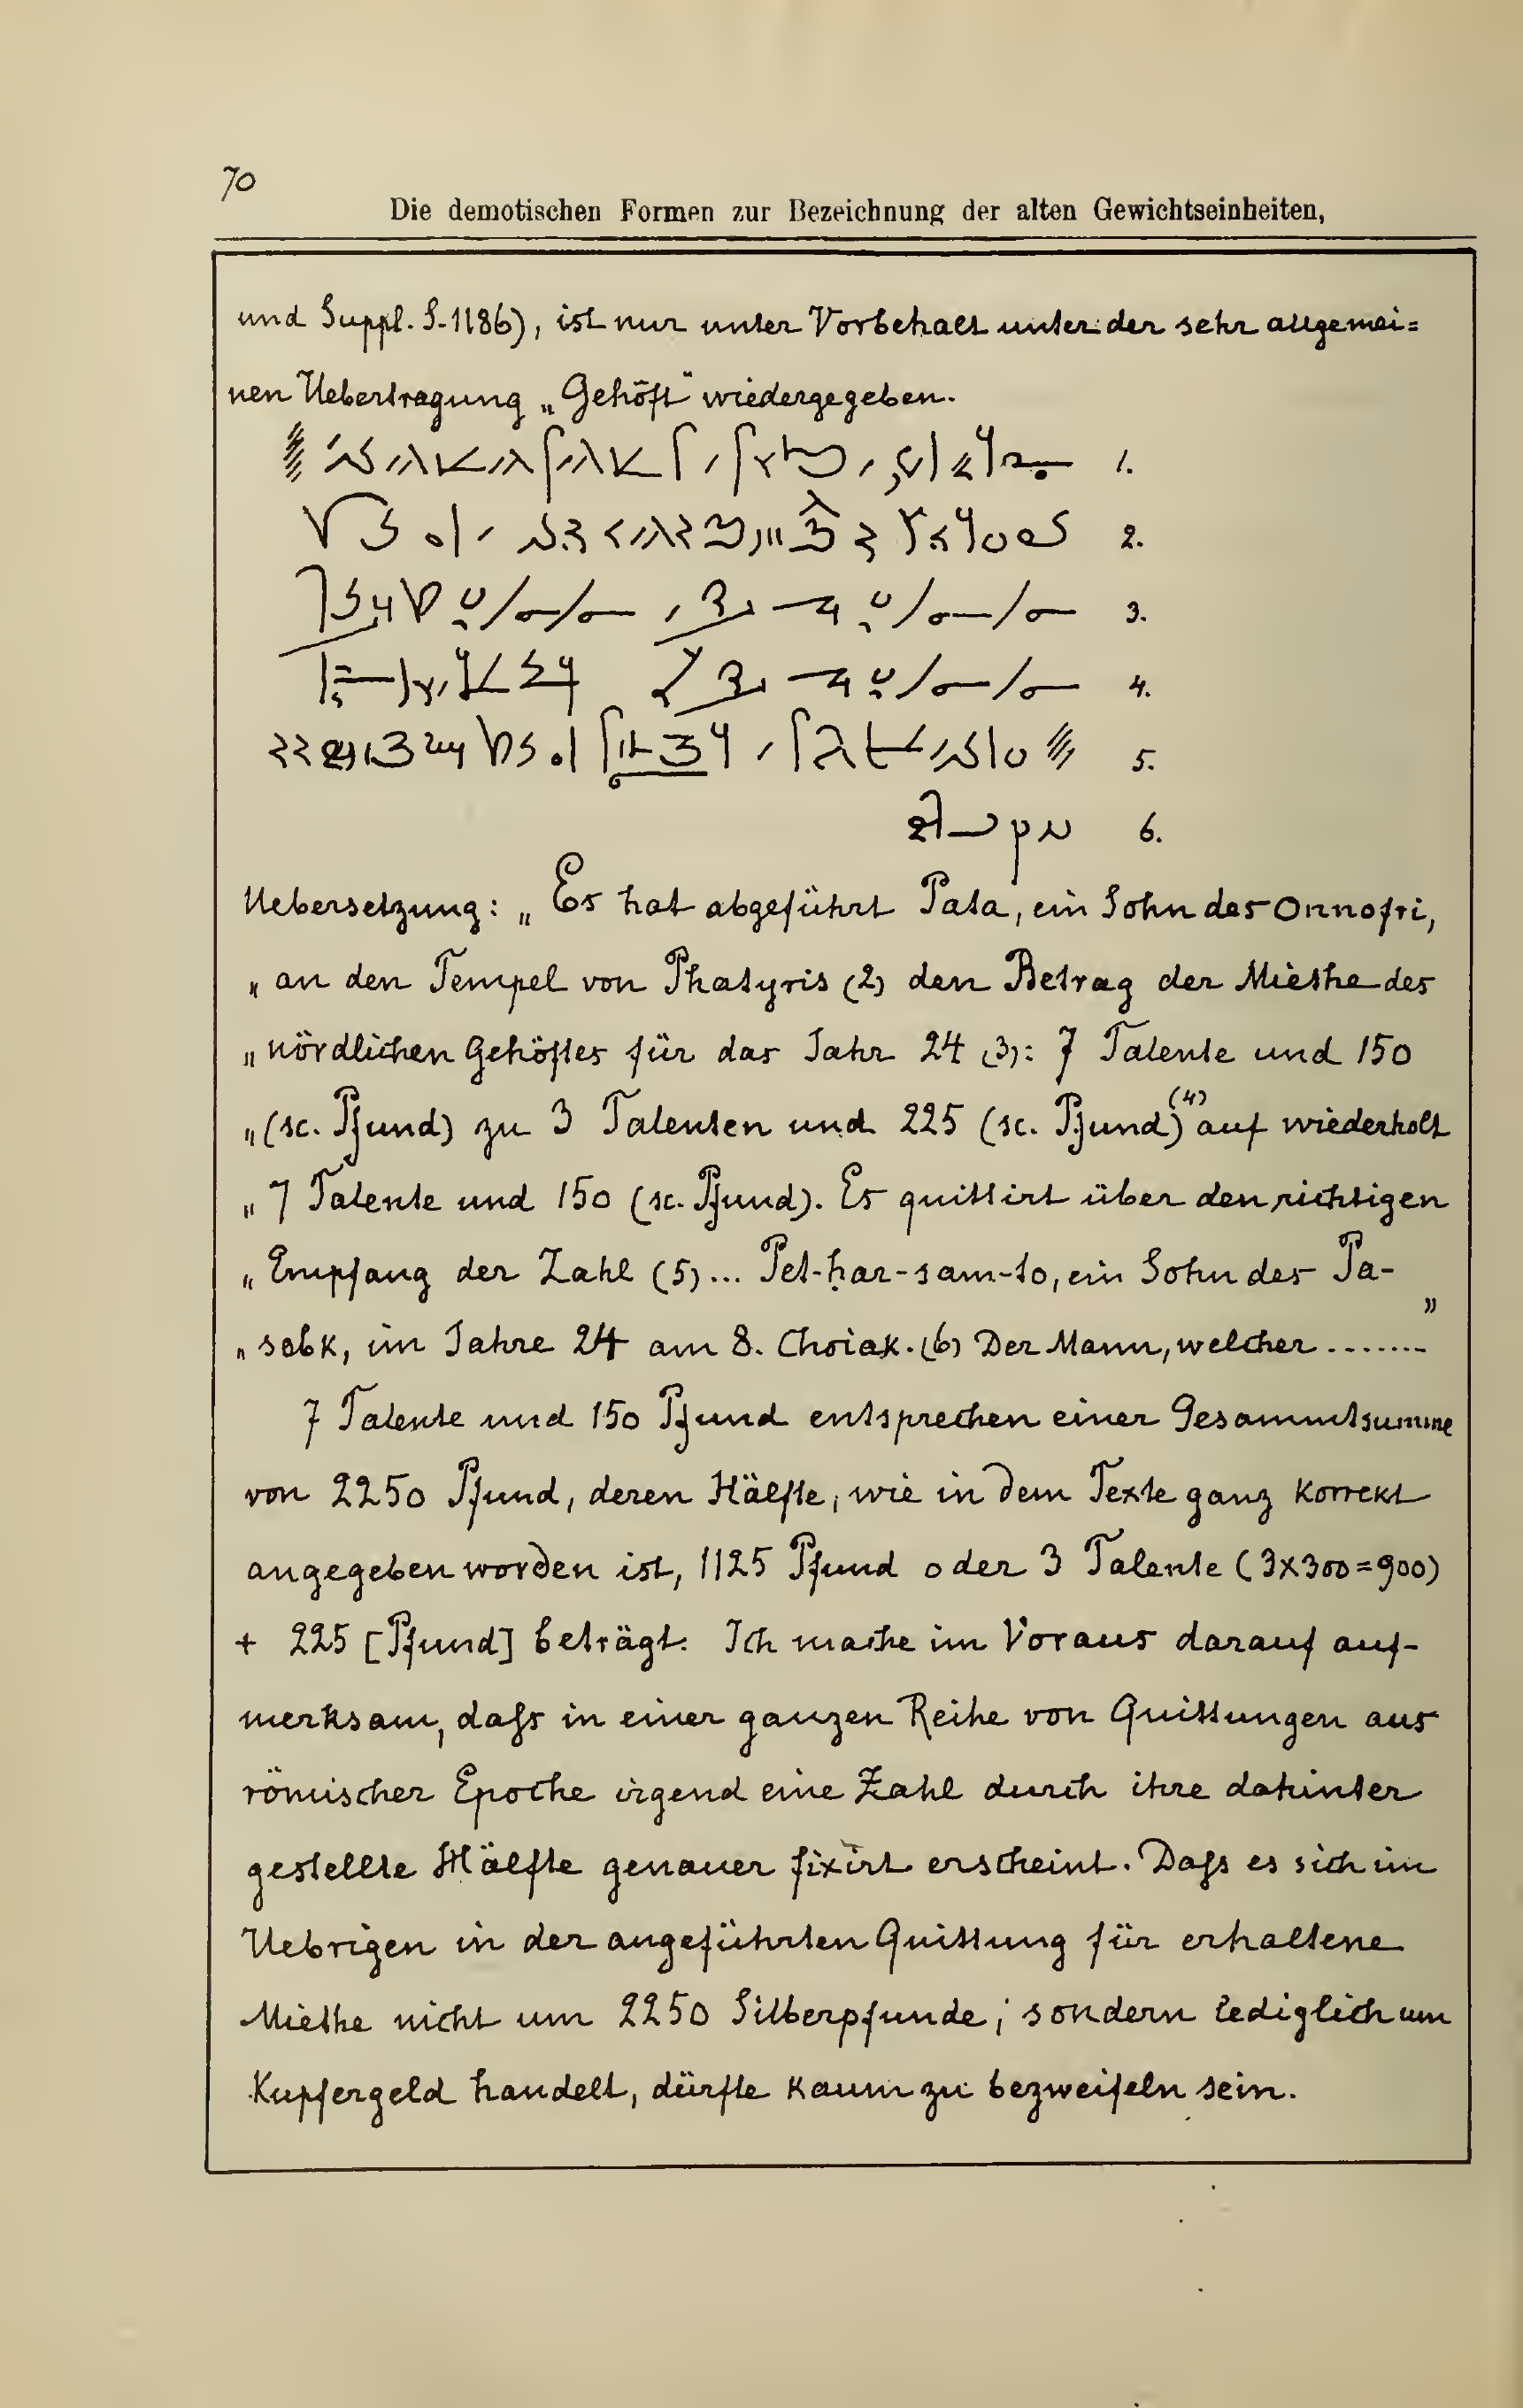 70
Die demotischen Formen zur Bezeichnung der alten Gewichtseinheiten,
und Suppl. S. 1186), ist nur unter Vorbehalt unter der sehr allgemei=
nen Uebertragung „Gehöft“ wiedergegeben.
1.
2.
3.
4.
5.
6.
Uebersetzung: „Es hat abgeführt Pata, ein Sohn des Onnofri,
„an den Tempel von Phatyris (2) den Betrag der Miethe des
„nördlichen Gehöftes für das Jahr 24 (3): 7 Talente und 150
„(sc. Pfund) zu 3 Talenten und 225 (sc. Pfund) (4) auf wiederholt
„7 Talente und 150 (sc. Pfund). Es quittirt über den richtigen
„Empfang der Zahl (5)... Pet-ḥar-sam-to, ein Sohn des Pa-
„sebk, im Jahre 24 am 8. Choiak. (6) Der Mann, welcher ........”
7 Talente und 150 Pfund entsprechen einer Gesammtsumme
von 2250 Pfund, deren Hälfte, wie in dem Texte ganz korrekt
angegeben worden ist, 1125 Pfund oder 3 Talente (3x300=900)
+ 225 [Pfund] beträgt. Ich mache im Voraus darauf auf-
merksam, daſs in einer ganzen Reihe von Quittungen aus
römischer Epoche irgend eine Zahl durch ihre dahinter
gestellte Hälfte genauer fixirt erscheint. Daſs es sich im
Uebrigen in der angeführten Quittung für erhaltene
Miethe nicht um 2250 Silberpfunde, sondern lediglich um
Kupfergeld handelt, dürfte kaum zu bezweifeln sein.